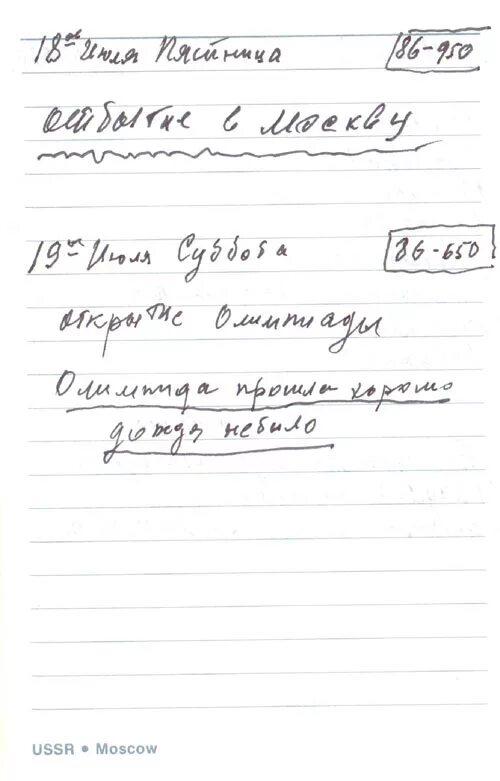 18ое Июля Пятница 86-950
отбытие в Москву
19ое Июля Суббота 86-650
открытие Олимпиады
Олимпида прошла хорошо
дождя небыло
USSR • Moscow